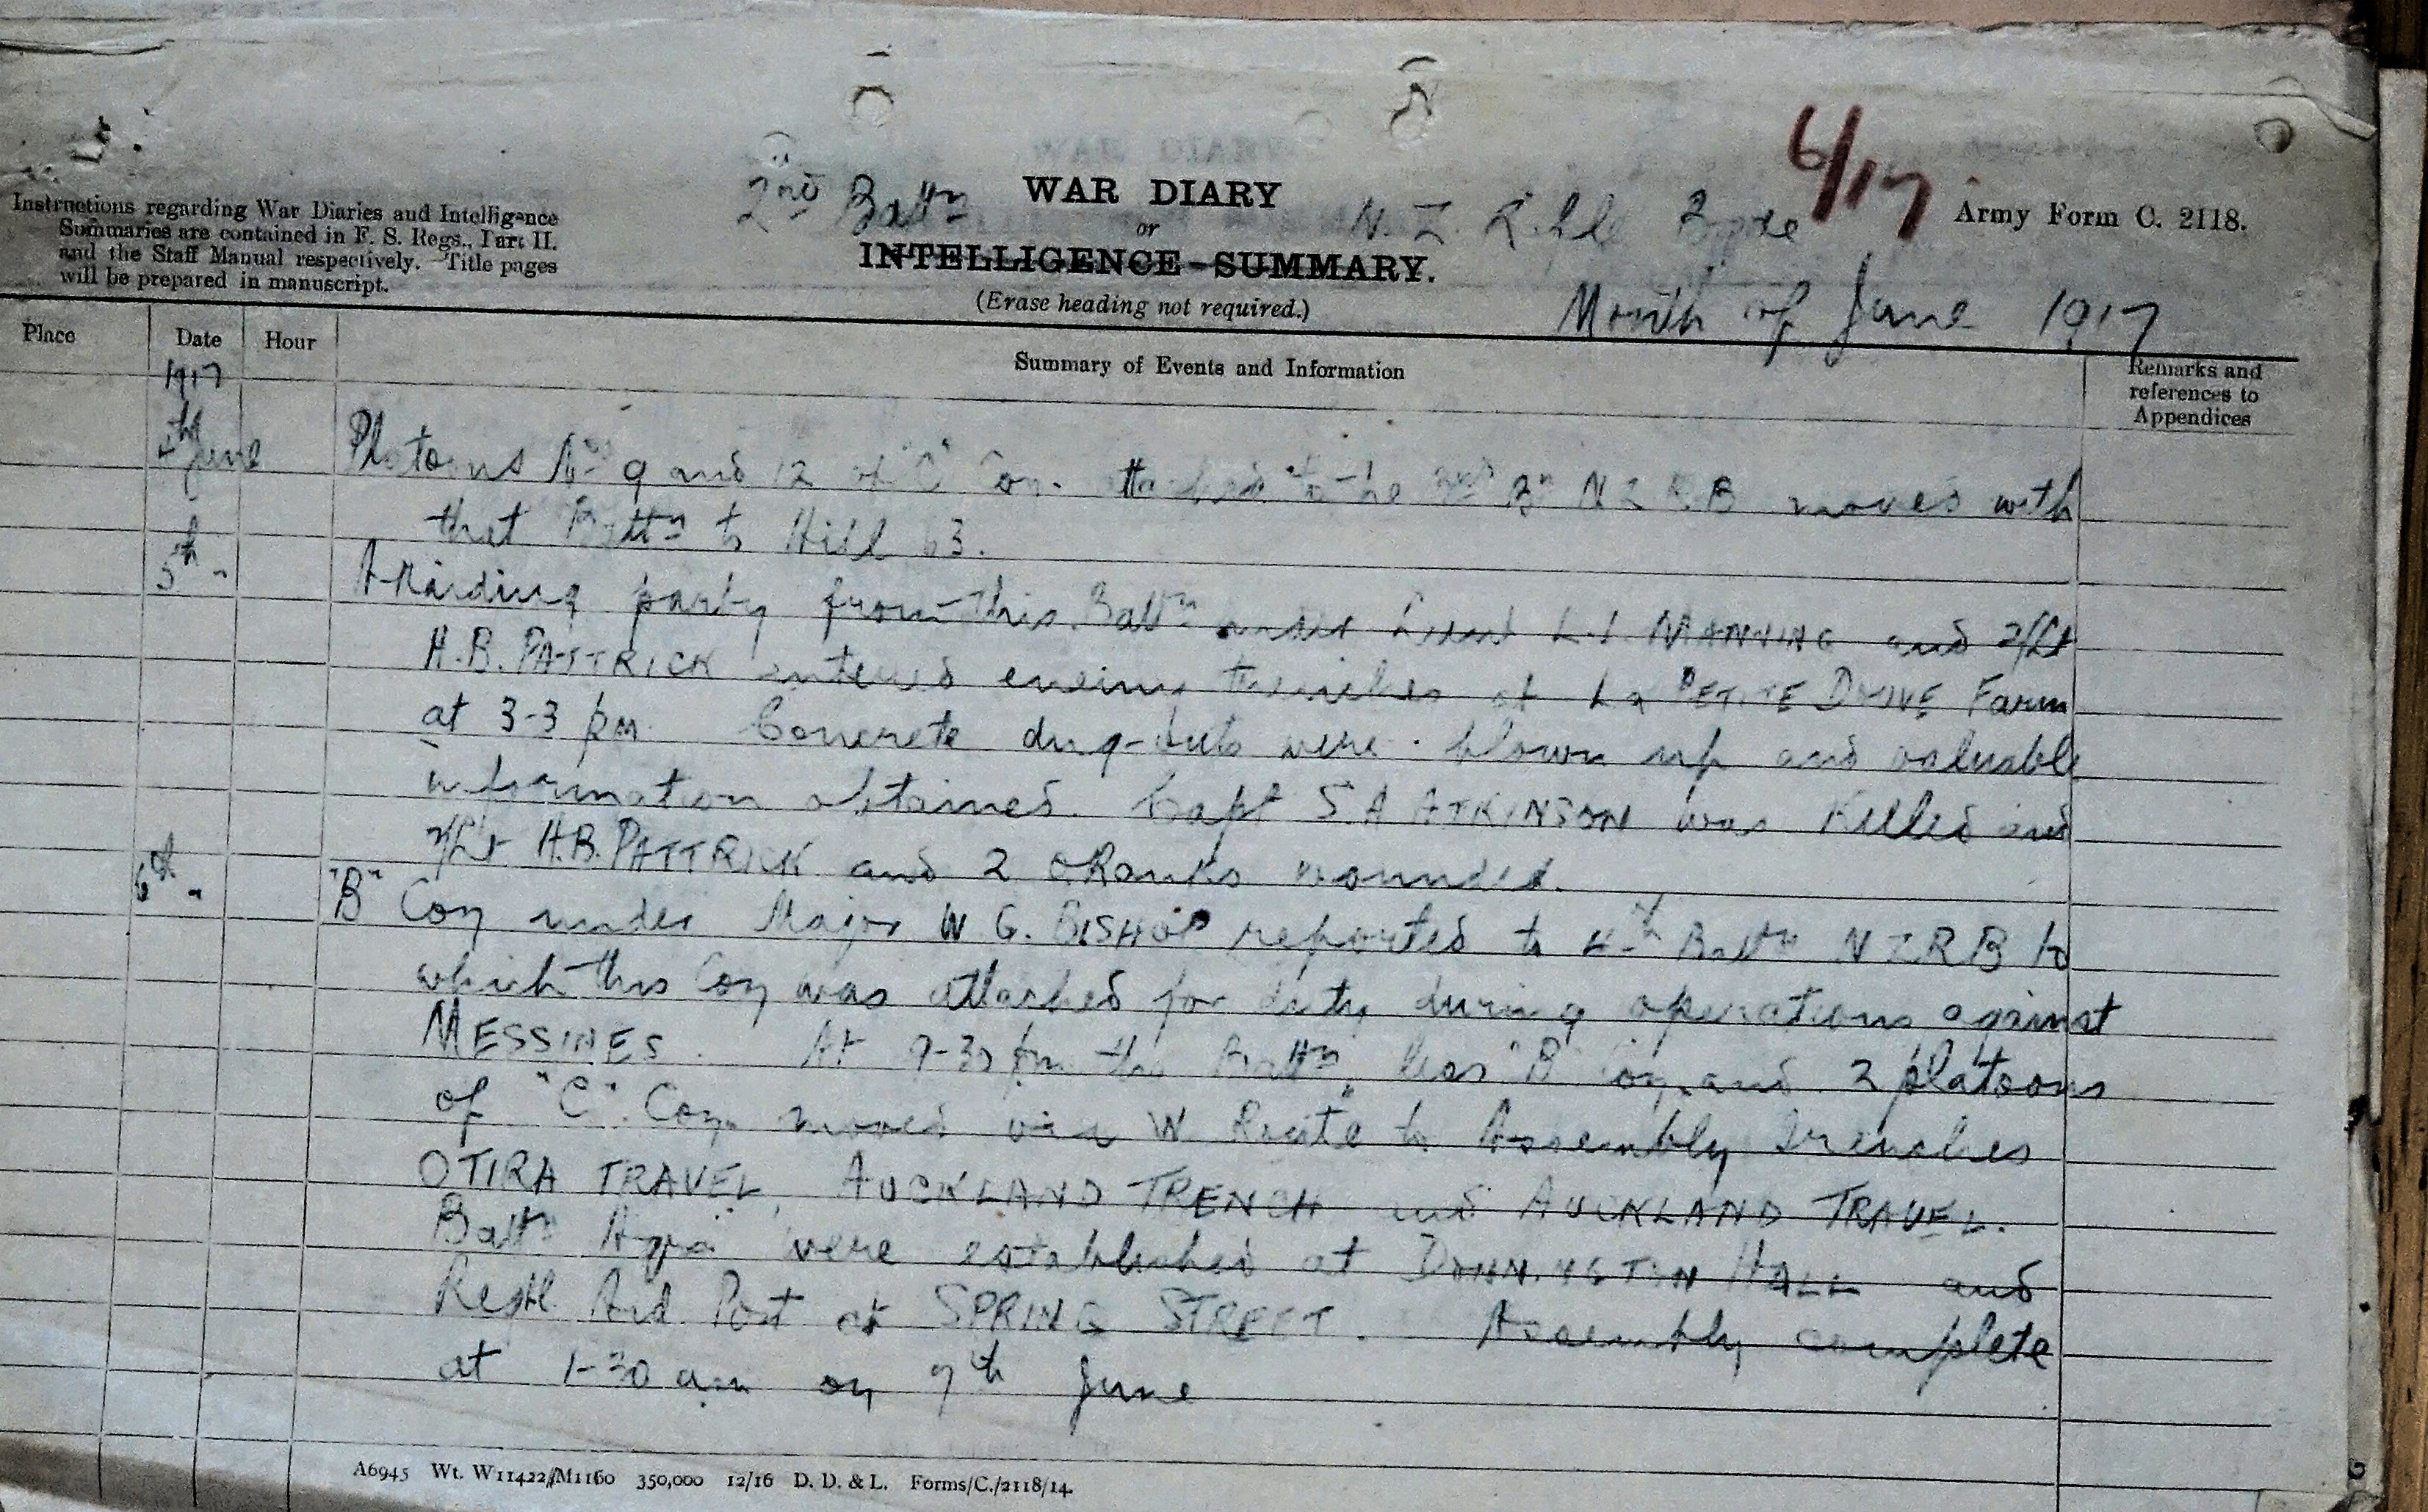 2nd Battn WAR DIARY N. Z. Rifle Bgde 6/17
Army Form C. 2118.
or
INTELLIGENCE SUMMARY.
(Erase heading not required.)
Month of June 1917
Instructions regarding War Diaries and Intelligence
Summaries are contained in F. S. Regs., Part II.
and the Staff Manual respectively. Title pages
will be prepared in manuscript.
Place Date Hour Summary of Events and Information Remarks and
references to
Appendices
1917
June Platoons Nos 9 and 12 of "C" Coy. attached to the 3rd Bn N Z R B moved with
that Battn to Hill 63.
5th " A raiding party from this Battn under Lieut L.I MANNING and 2/Lt
H.B. PATTRICK entered enemy trenches at La PETITE DOUVE Farm
at 3-3 pm. Concrete dug-outs were blown up and valuable
information obtained. Capt S.A ATKINSON was killed and
2/Lt H.B. PATTRICK and 2 ORanks wounded.
6th " "B" Coy under Major W G. BISHOP reported to 4th Battn N Z R B to
which this Coy was attached for duty during operations against
MESSINES. At 9-30 pm the Battn, less "B" Coy and 2 platoons
of "C" Coy. moved via "W" Route to Assembly Trenches
OTIRA TRAVEL, AUCKLAND TRENCH and AUCKLAND TRAVEL.
Battn Hqrs were established at DONNINGTON HALL and
Regtl. Aid Post at SPRING STREET. Assembly complete
at 1-30 am on 7th June
A6945 Wt. W11422/M1160 350,000 12/16 D. D. & L. Forms/C./2118/14.